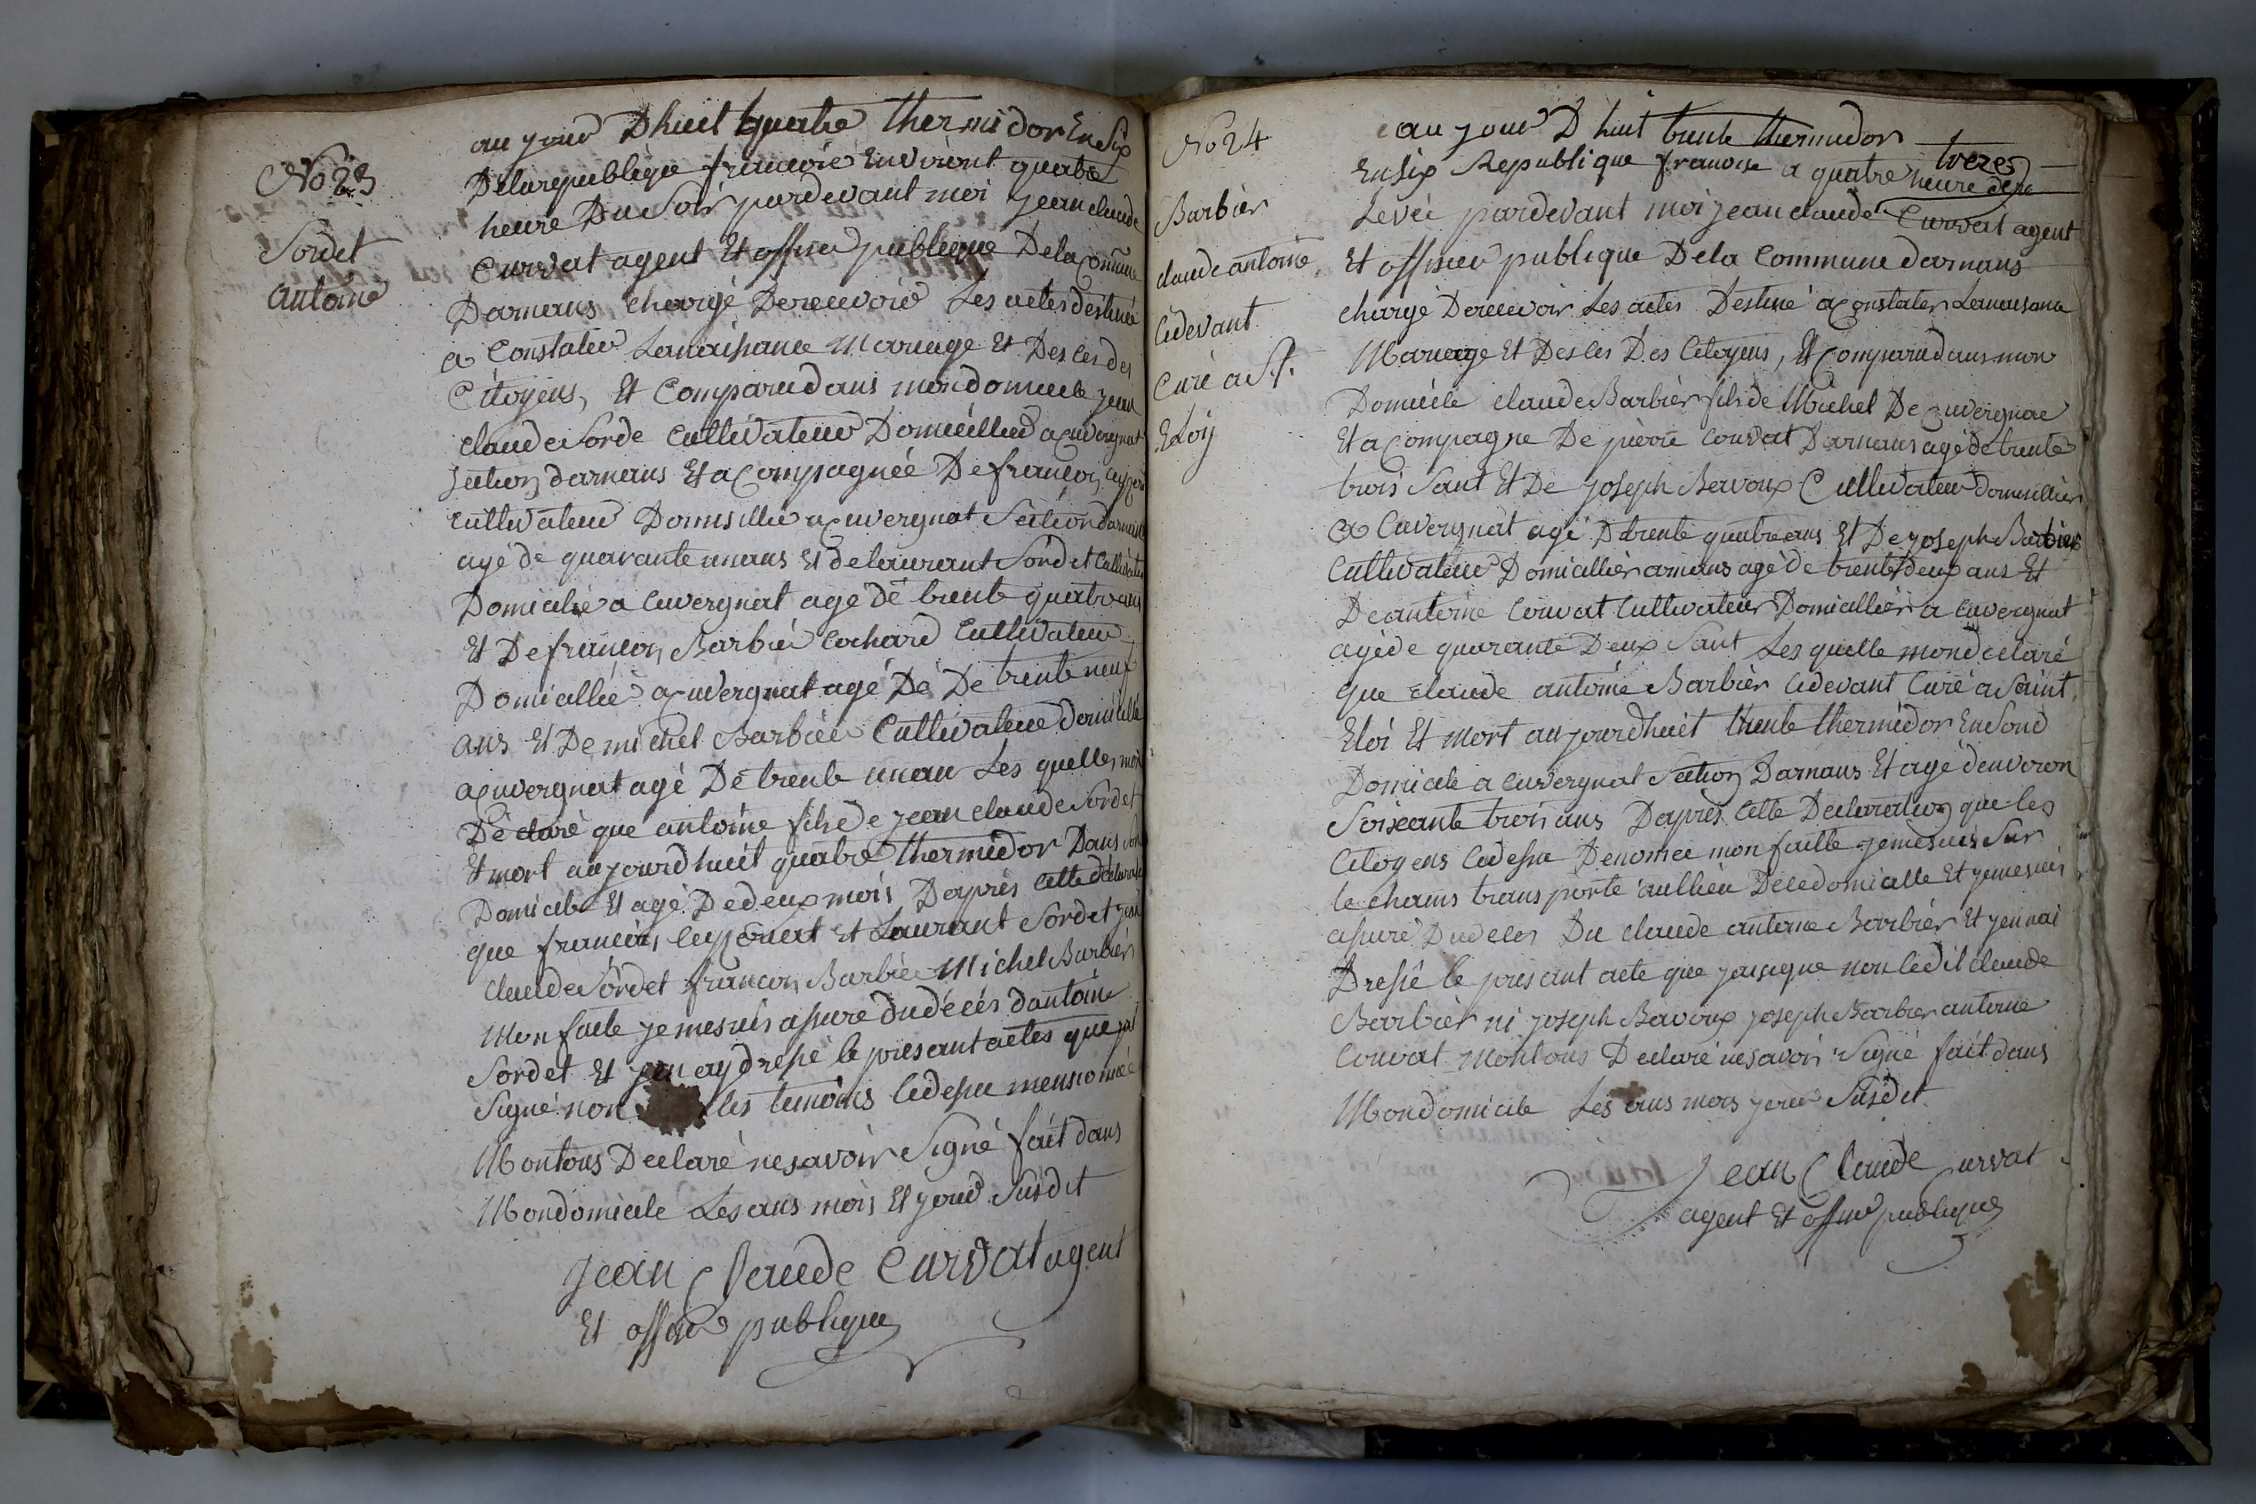 No 23
Sordet
antoine
aujourd Dhuit quatre thermidor En Six
Delarepublique francoise Environt quatre
heure Du Soir pardevant moi jean claude
Curvat agent Et officier publique Dela Commune
Darnans chargé Derecevoir Les actes destinée
a Constater Lanaisance Mariage Et Desces des
Citoyens, Et Comparu dans mondomicile jean
claude Sorde Cultivateur Domicillied a cuvergnat
Section darnans Et acompagnée De francois
Cultivateur Domisillié a cuvergnat Section darnans
agé de quarante unans Et de laurant Sordet Cultivateur
Domicilié a cuvergnat agé dé trente quatre ans
Et De francois Barbier cochard Cultivateur
Domicallié a cuvergnat agé Dé De trente neuf
ans Et De michel Barbier Cultivateur domicillé
a cuvergnat agé Dé trente unan Les quelles mon
Déclaré que antoine fils de jean claude Sordet
Et mort aujourdhuit quatre thermidor Dans son
Domicile Et agé De deux mois Dapres cette déclaration
que francois Et Laurant Sordet jean
claude Sordet francois Barbier Michel Barbier
Mon faite je me suis assuré du décés dantoine
Sordet Et jen ay dressé le presant actes que jai
Signé non les temoins cidessu mensionnée
Montous Declaré nesavoir Signé fait dans
Mondomicile Les ans mois Et jour Susdit
Jean Claude Curvat agent
Et officier publique
No 24
Barbier
claude antoine
Cidevant
Curé a St.
Eloy
aujour Dhuit trente thermidor
En six Republique francoise a quatre heure dere
Levée pardevant moi jean claude Curvat agent
Et officier publique De la Commune darnans
chargé Derecevoir Les actes Destiné a Constater Lanaisance
Mariage Et Desces Des Citoyens, Et Comparu dans mon
Domicile claude Barbier fils de Michel De cuvergnat
Et acompagne De pierre Convat Darnans agé de trente
trois Sant Et De joseph Bavoux Cultivateur domicillier
a Cuvergnat agé De trente quatre ans Et De joseph Barbier
Cultivateur Domicallier arnans agé de trente deux ans Et
De antoine Convat Cultivateur Domicallier a cuvergnat
agé de quarante Deux Sant Les quelle mon declaré
que claude antoine Barbier Cidevant Curé a Saint
Eloi Et mort aujourdhuit trente thermidor En Sond
Domicile a cuvergnat Section Darnans Et agé denviron
Soixante trois ans Dapres cette Declaration que les
Citoyens Cidessu Denomée mon faitte je me suis Sur
le chams transporté aullieu De ce domicalle Et je me suis
assuré Du deces Du claude antoine Barbier Et jen nai
Dressé le presant acte que jai signe non ledit claude
Barbier ni joseph Bavoux joseph Barbier antoine
Convat Montous Declaré nesavoir Signé fait dans
Mondomicile Les ans mois jour Susdit
Jean Claude Curvat
agent Et officier publique